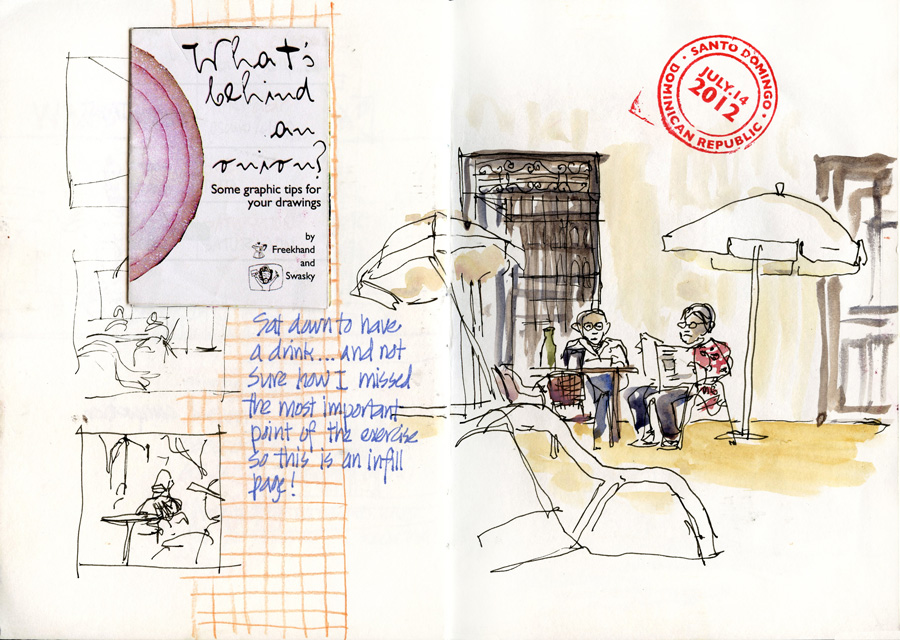 What's
behind
an
onion?
Some graphic tips for
your drawings
by
Freekhand
and
Swasky
Sat down to have
a drink... and not
sure how I missed
the most important
point of the exercise
so this is an infill
page!
· SANTO DOMINGO ·
JULY.14
2012
DOMINICAN REPUBLIC